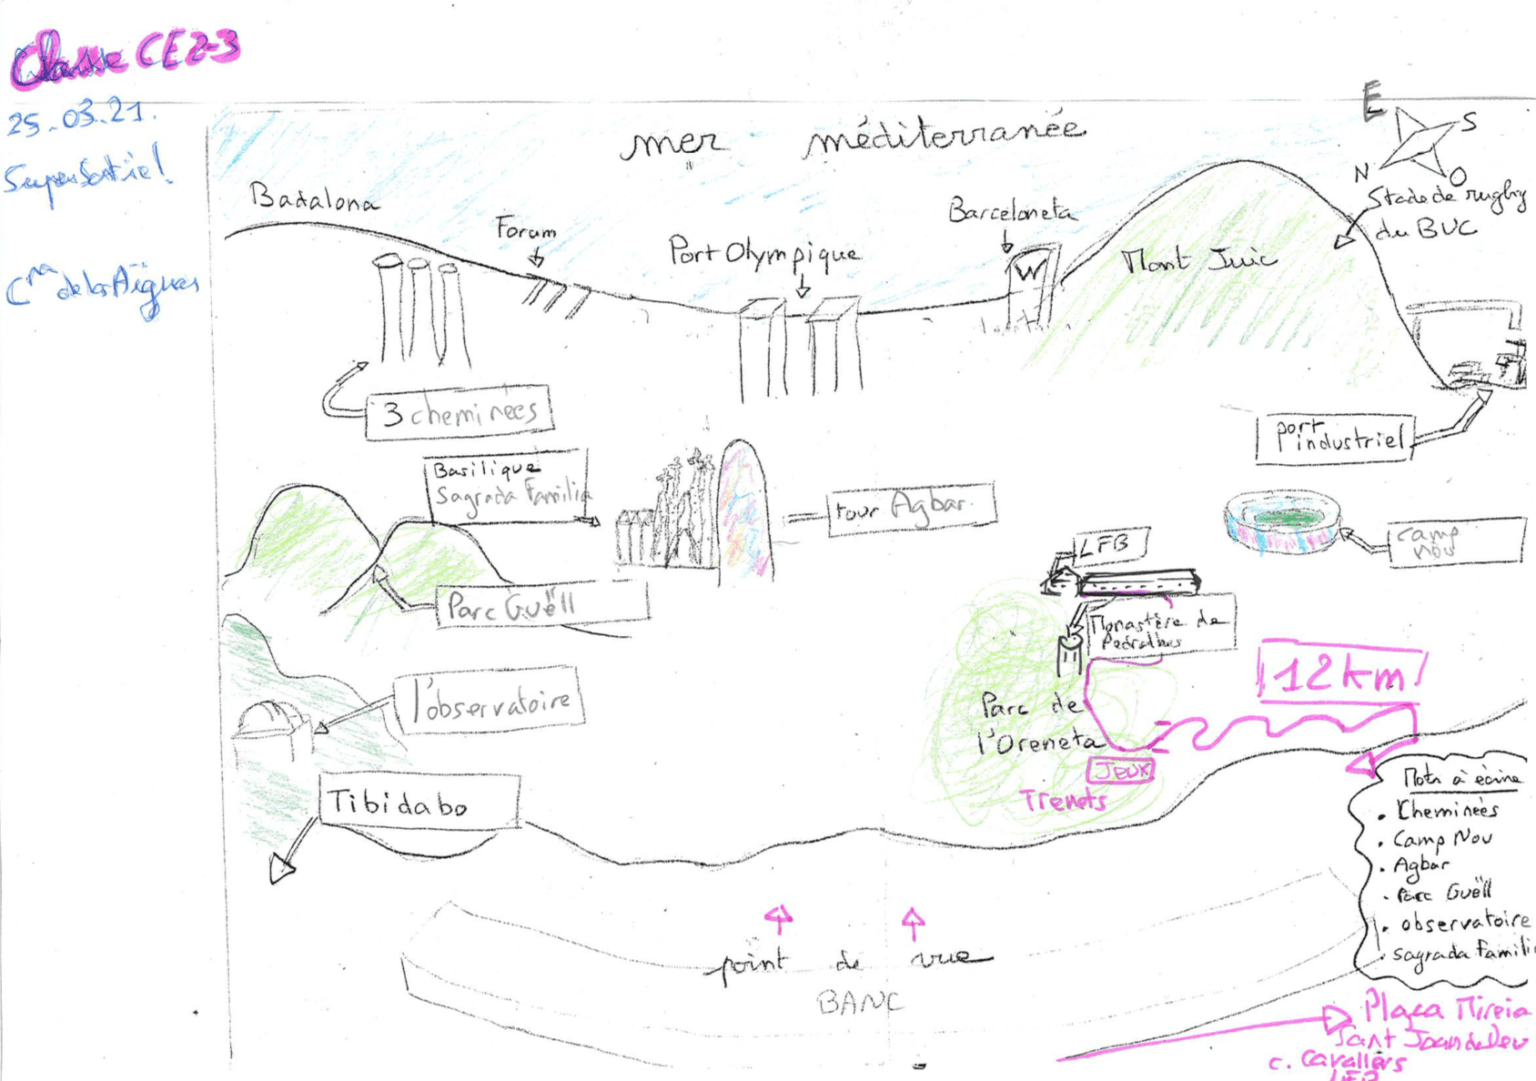 Classe CE2-3
25.03.21.
Super Sortie!
Cra de les Aïgues
mer méditerranée
E
S
N
O
Badalona
Forum
Port Olympique
Barceloneta
W
Mont Juic
Stade de rugby
du BUC
3 cheminées
port
industriel
Basilique
Sagrada Familia
tour Agbar
camp
nou
LFB
Parc Guëll
Monastère de
Pedralbes
12 km
l'observatoire
Parc de
l'Oreneta
JEUX
Trenets
Tibidabo
Mots à écrire
• Cheminées
• Camp Nou
• Agbar
• Parc Guëll
• observatoire
• sagrada famili
point de vue
BANC
Plaça Mireia
Sant Joan de Deu
c. Cavallers
LFB